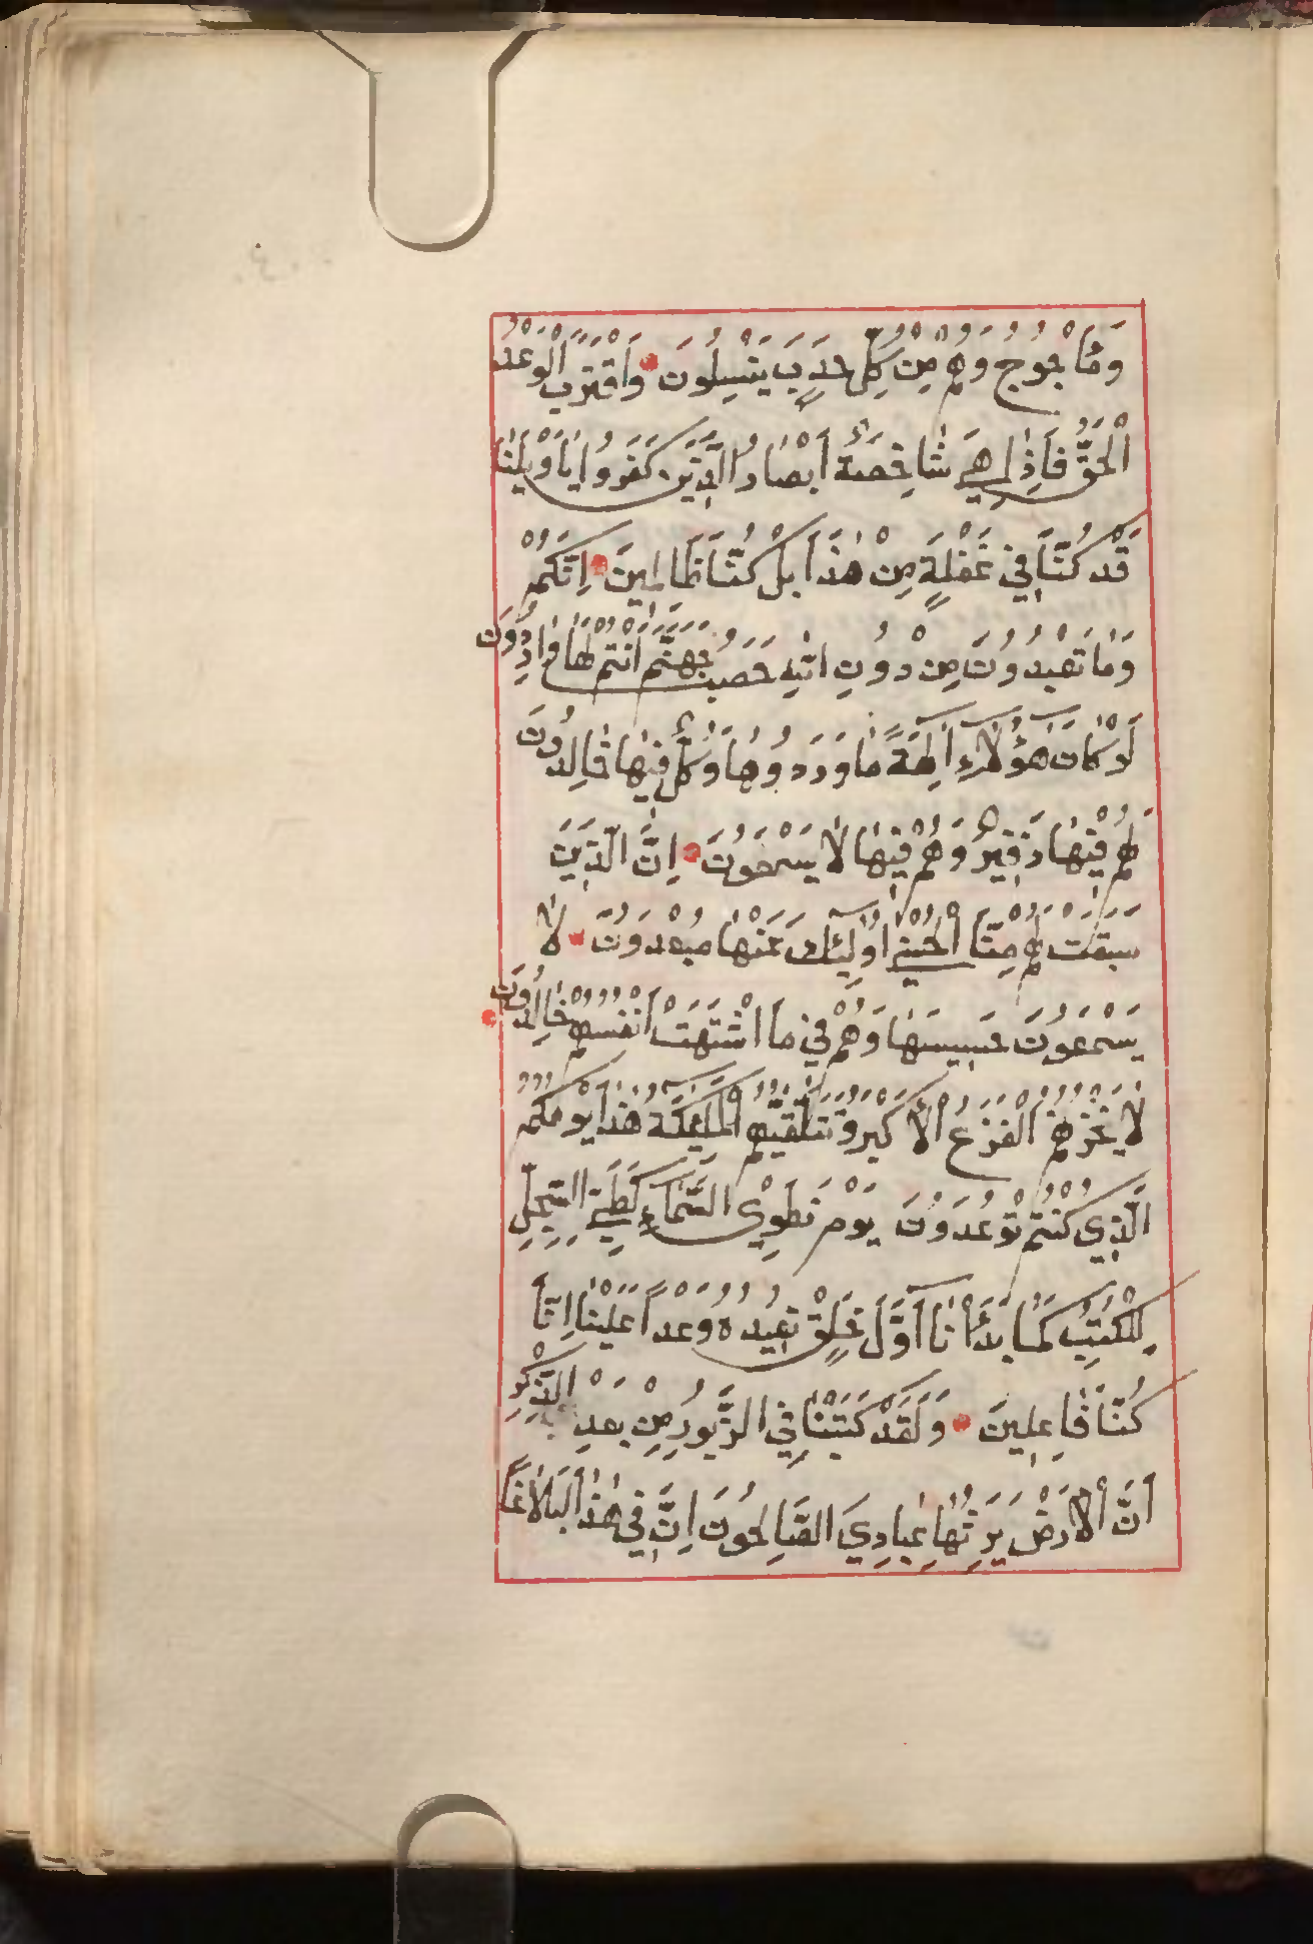 وَمَأْجُوجُ وَهُمْ مِنْ كُلِّ حَدَبٍ يَنْسِلُونَ وَاقْتَرَبَ الْوَعْدُ
الْحَقُّ فَاِذٰا هِيَ شٰاخِصَةٌ اَبْصٰارُ الَّذِينَ كَفَرُوا يٰاوَيْلَنٰا
قَدْ كُنّٰا فِي غَفْلَةٍ مِنْ هٰذٰا بَلْ كُنّٰا ظٰالِمِينَ اِنَّكُمْ
وَمٰا تَعْبُدُونَ مِنْ دُونِ اللّٰهِ حَصَبُ جَهَنَّمَ اَنْتُمْ لَهٰا وٰارِدُونَ
لَوْ كٰانَ هٰؤُلٰاءِ اٰلِهَةً مٰا وَرَدُوهٰا وَكُلٌّ فِيهٰا خٰالِدُونَ
لَهُمْ فِيهٰا زَفِيرٌ وَهُمْ فِيهٰا لٰا يَسْمَعُونَ اِنَّ الَّذِينَ
سَبَقَتْ لَهُمْ مِنَّا الْحُسْنٰى اُولٰئِكَ عَنْهٰا مُبْعَدُونَ لٰا
يَسْمَعُونَ حَسِيسَهٰا وَهُمْ فِي مَا اشْتَهَتْ اَنْفُسُهُمْ خٰالِدُونَ
لٰا يَحْزُنُهُمُ الْفَزَعُ الْأَكْبَرُ وَتَتَلَقّٰيهُمُ الْمَلٰئِكَةُ هٰذٰا يَوْمُكُمُ
الَّذِي كُنْتُمْ تُوعَدُونَ يَوْمَ نَطْوِي السَّمٰاءَ كَطَيِّ السِّجِلِّ
لِلْكُتُبِ كَمٰا بَدَأْنٰا اَوَّلَ خَلْقٍ نُعِيدُهُ وَعْداً عَلَيْنٰا اِنّٰا
كُنّٰا فٰاعِلِينَ وَلَقَدْ كَتَبْنٰا فِي الزَّبُورِ مِنْ بَعْدِ الذِّكْرِ
اَنَّ الْاَرْضَ يَرِثُهٰا عِبٰادِيَ الصّٰالِحُونَ اِنَّ فِي هٰذٰا لَبَلٰاغاً